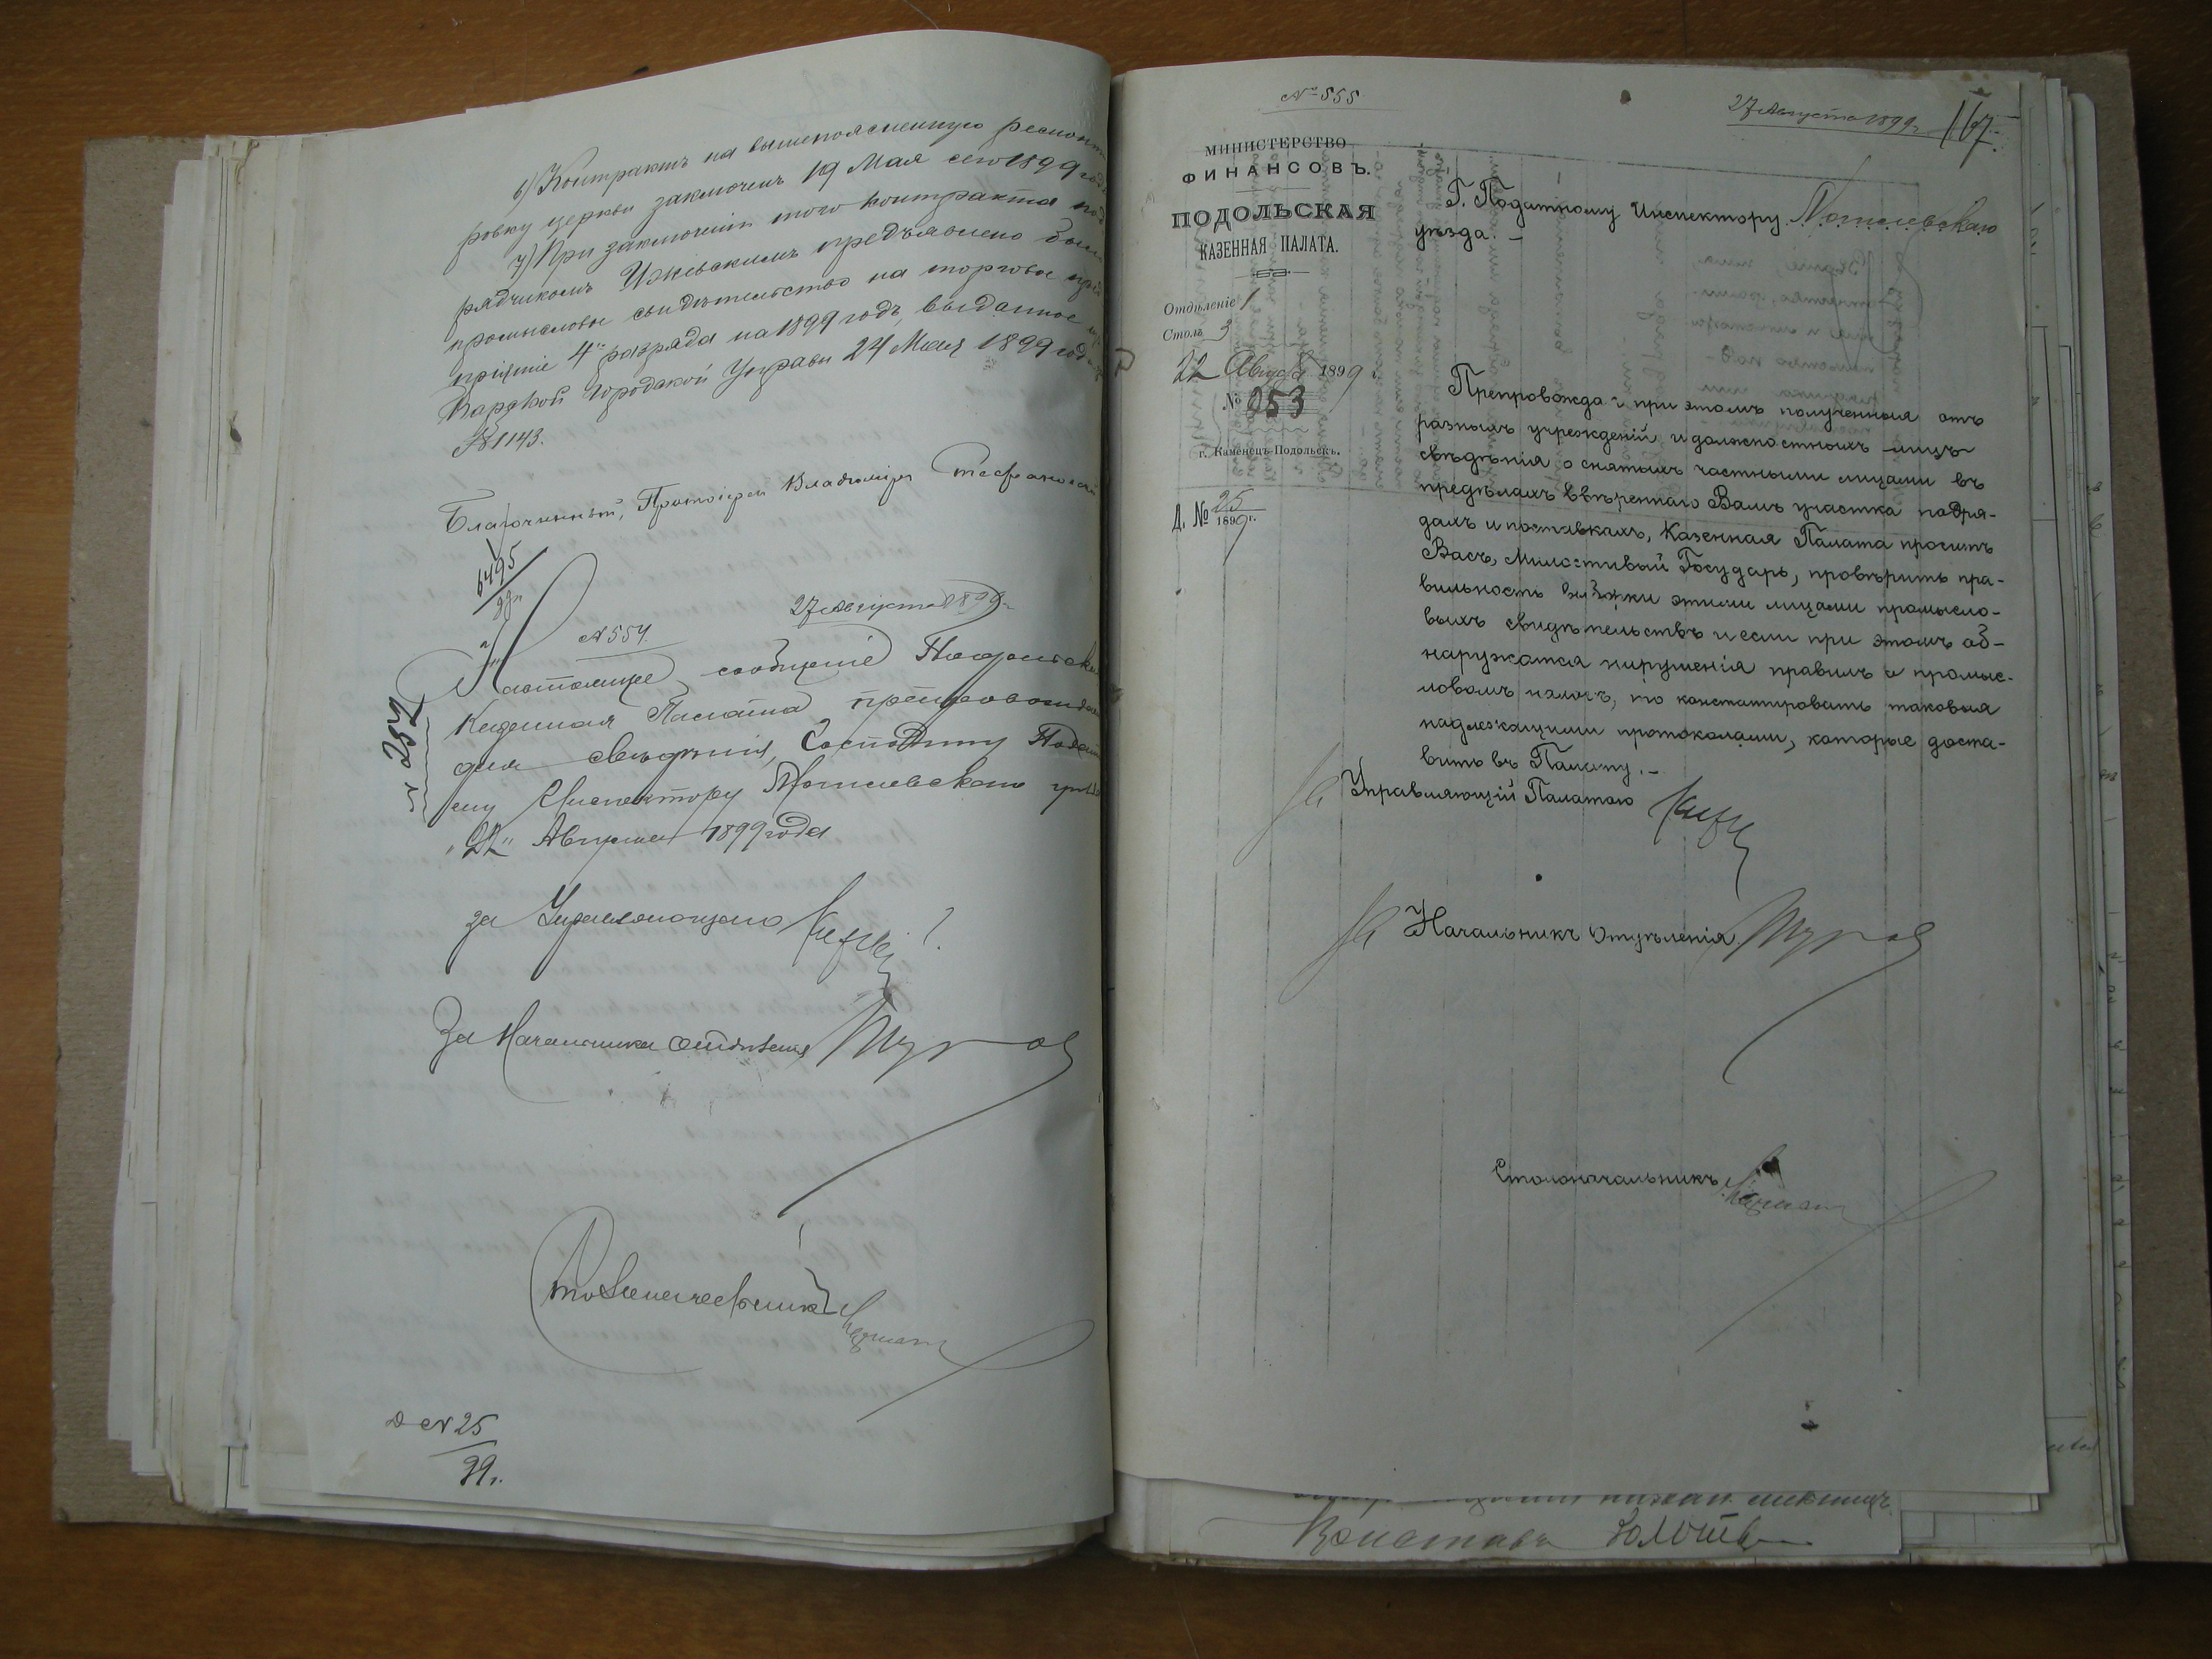 6) Контрактъ на вышепоясненную
ровку церкви заключенъ 19 Мая сего 1899
7) При заключеніи того контракта
рядчикомъ предъявлено
промысловое свидѣтельство на торговое
пріятіе 4го разряда на 1899 годъ, выданное
Барской Городской Управы 24 Мая 1899
№ 1143.
Благочинный, Протоіерей Владиміръ
6495
99 г.
27 Августа 1899 г.
№ 554.
Настоящее сообщеніе
Казенная Палата
для свѣдѣнія, Господину
му Инспектору Могилевскаго
„22" Августа 1899 года
№ 252
за Управляющаго
За Начальника Отдѣленія
Столоначальникъ
Д № 25
99 г.
№ 555
27 Августа 1899 г.
167.
МИНИСТЕРСТВО
ФИНАНСОВЪ.
ПОДОЛЬСКАЯ
КАЗЕННАЯ ПАЛАТА.
Отдѣленіе 1
Столъ 3
22 Августа 1899 г.
№ 253
г. Каменецъ-Подольскъ.
Д. № 25
1899 г.
Г. Податному Инспектору Могилевскаго
уѣзда. –
Препровождая при этомъ полученныя отъ
разныхъ учрежденій и должностныхъ лицъ
свѣдѣнія о снятыхъ частными лицами въ
предѣлахъ ввѣреннаго Вамъ участка подря-
дахъ и поставкахъ, Казенная Палата проситъ
Васъ, Милостивый Государь, провѣрить пра-
вильность выборки этими лицами промысло-
выхъ свидѣтельствъ и если при этомъ об-
наружатся нарушенія правилъ о промыс-
ловомъ налогѣ, то констатировать таковыя
надлежащими протоколами, которые доста-
вить въ Палату. –
За Управляющій Палатою
За Начальникъ Отдѣленія
Столоначальникъ